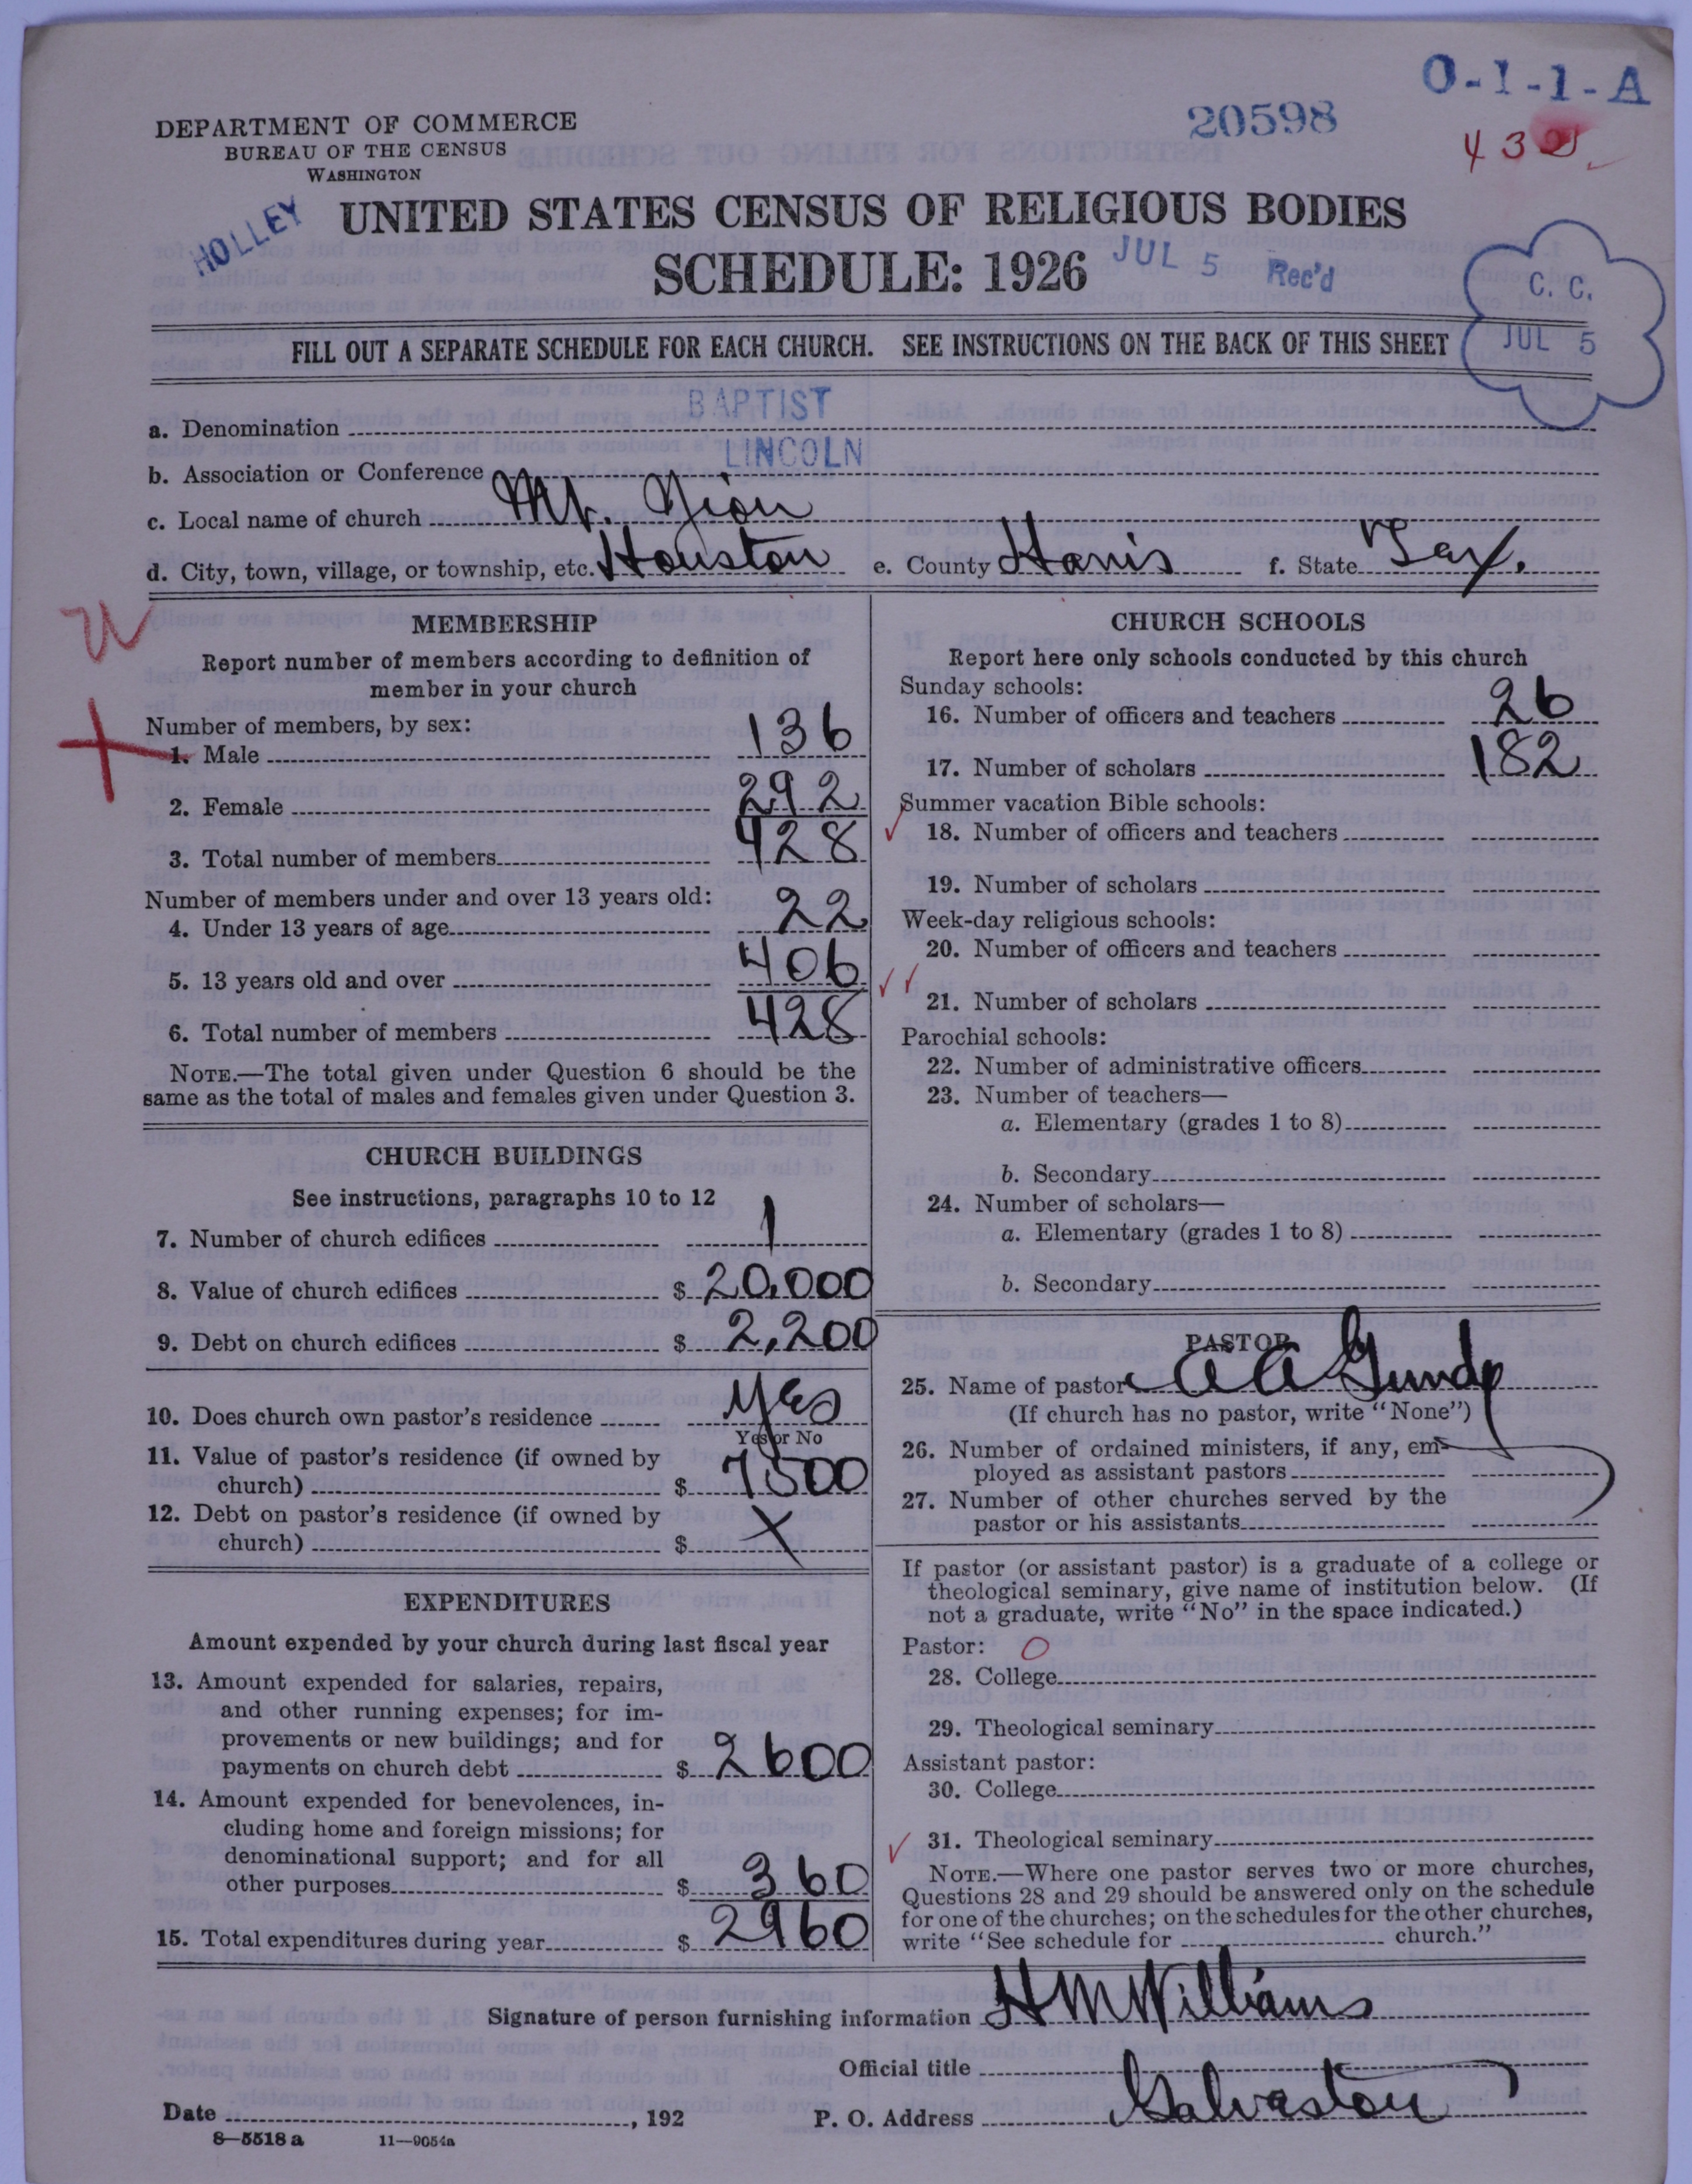 O-1-1-A
20598
DEPARTMENT OF COMMERCE
BUREAU OF THE CENSUS
WASHINGTON
HOLLEY
UNITED STATES CENSUS OF RELIGIOUS BODIES
SCHEDULE: 1926
JUL 5 Rec'd
C. C.
JUL 5
FILL OUT A SEPARATE SCHEDULE FOR EACH CHURCH. SEE INSTRUCTIONS ON THE BACK OF THIS SHEET
a. Denomination BAPTIST
b. Association or Conference LINCOLN
c. Local name of church Mt. Zion
d. City, town, village, or township, etc. Houston e. County Harris f. State Tex.
MEMBERSHIP
Report number of members according to definition of
member in your church
Number of members, by sex:
1. Male 136
2. Female 292
3. Total number of members 428
Number of members under and over 13 years old:
4. Under 13 years of age 22
5. 13 years old and over 406
6. Total number of members 428
NOTE.—The total given under Question 6 should be the
same as the total of males and females given under Question 3.
CHURCH BUILDINGS
See instructions, paragraphs 10 to 12
7. Number of church edifices 1
8. Value of church edifices $ 20,000
9. Debt on church edifices $ 2,200
10. Does church own pastor's residence Yes
Yes or No
11. Value of pastor's residence (if owned by
church) $ 1500
12. Debt on pastor's residence (if owned by
church) $ X
EXPENDITURES
Amount expended by your church during last fiscal year
13. Amount expended for salaries, repairs,
and other running expenses; for im-
provements or new buildings; and for
payments on church debt $ 2600
14. Amount expended for benevolences, in-
cluding home and foreign missions; for
denominational support; and for all
other purposes $ 360
15. Total expenditures during year $ 2960
CHURCH SCHOOLS
Report here only schools conducted by this church
Sunday schools:
16. Number of officers and teachers 26
17. Number of scholars 182
Summer vacation Bible schools:
18. Number of officers and teachers
19. Number of scholars
Week-day religious schools:
20. Number of officers and teachers
21. Number of scholars
Parochial schools:
22. Number of administrative officers
23. Number of teachers—
a. Elementary (grades 1 to 8)
b. Secondary
24. Number of scholars—
a. Elementary (grades 1 to 8)
b. Secondary
PASTOR
25. Name of pastor A A
(If church has no pastor, write "None")
26. Number of ordained ministers, if any, em-
ployed as assistant pastors
27. Number of other churches served by the
pastor or his assistants
If pastor (or assistant pastor) is a graduate of a college or
theological seminary, give name of institution below. (If
not a graduate, write "No" in the space indicated.)
Pastor: O
28. College
29. Theological seminary
Assistant pastor:
30. College
31. Theological seminary
NOTE.—Where one pastor serves two or more churches,
Questions 28 and 29 should be answered only on the schedule
for one of the churches; on the schedules for the other churches,
write "See schedule for church."
Signature of person furnishing information H M Williams
Official title
Date , 192 P. O. Address Galveston
8—5518 a 11—9054a